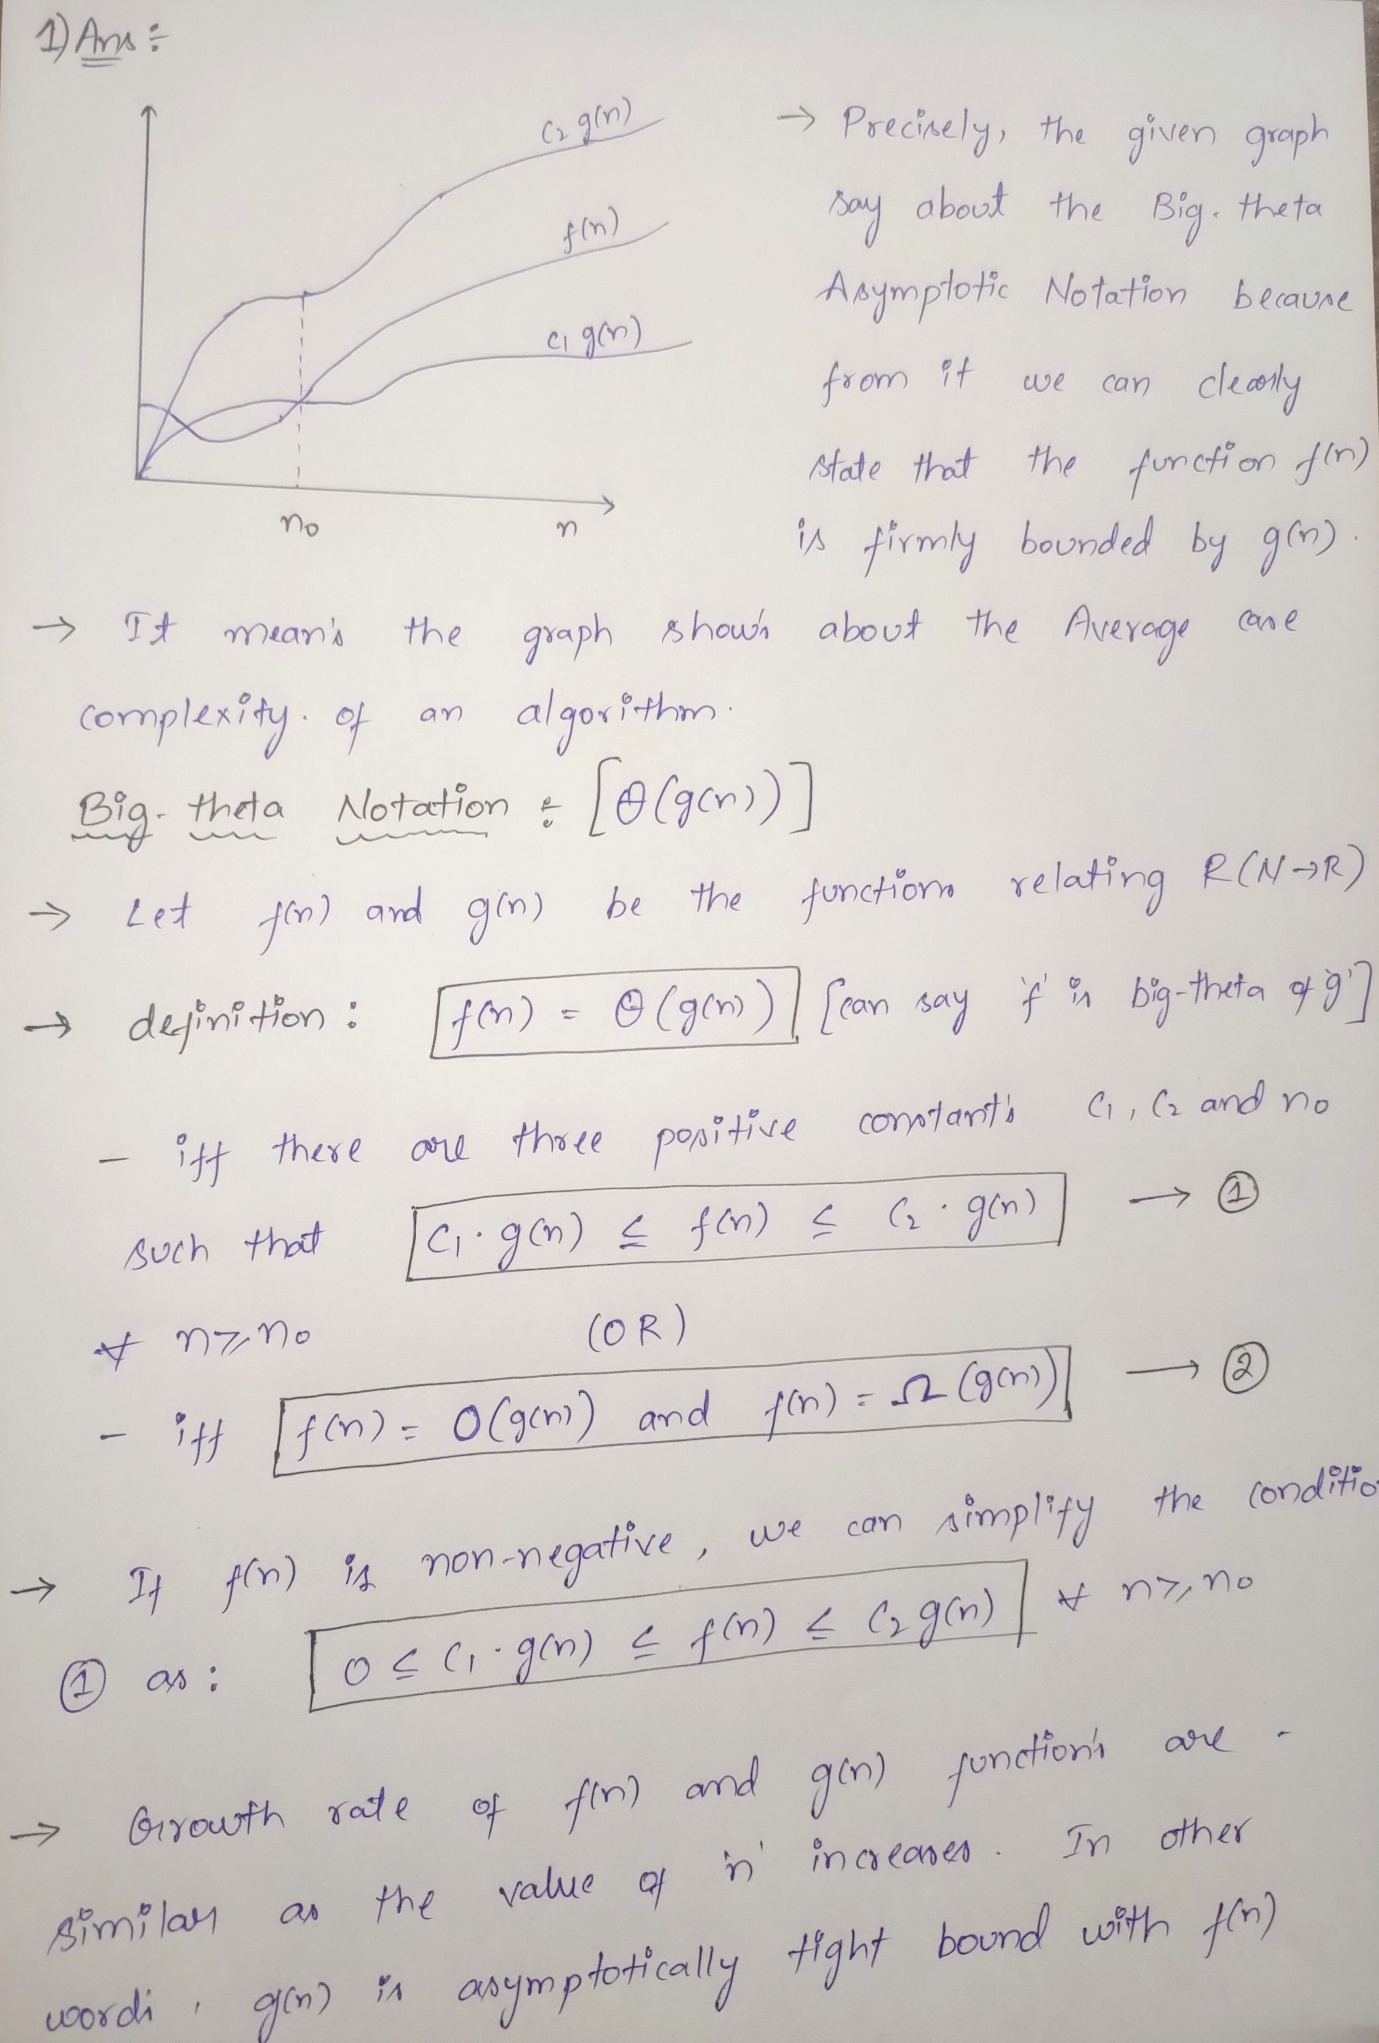 1) Ans :
C2 g(n)
f(n)
C1 g(n)
n0
n
→ Precisely, the given graph
say about the Big-theta
Asymptotic Notation because
from it we can clearly
state that the function f(n)
is firmly bounded by g(n).
→ It mean's the graph show's about the Average case
complexity. of an algorithm.
Big-theta Notation : [θ(g(n))]
→ Let f(n) and g(n) be the functions relating R(N→R)
→ definition : f(n) = θ(g(n)) [can say 'f' is big-theta of 'g']
- iff there are three positive constant's C1, C2 and n0
such that C1·g(n) ≤ f(n) ≤ C2·g(n) → ①
∀ n≥n0 (OR)
- iff f(n) = O(g(n)) and f(n) = Ω(g(n)) → ②
→ If f(n) is non-negative, we can simplify the conditio
① as : 0 ≤ C1·g(n) ≤ f(n) ≤ C2 g(n) ∀ n≥n0
→ Growth rate of f(n) and g(n) function's are -
similar as the value of 'n' increases. In other
words, g(n) is asymptotically tight bound with f(n)